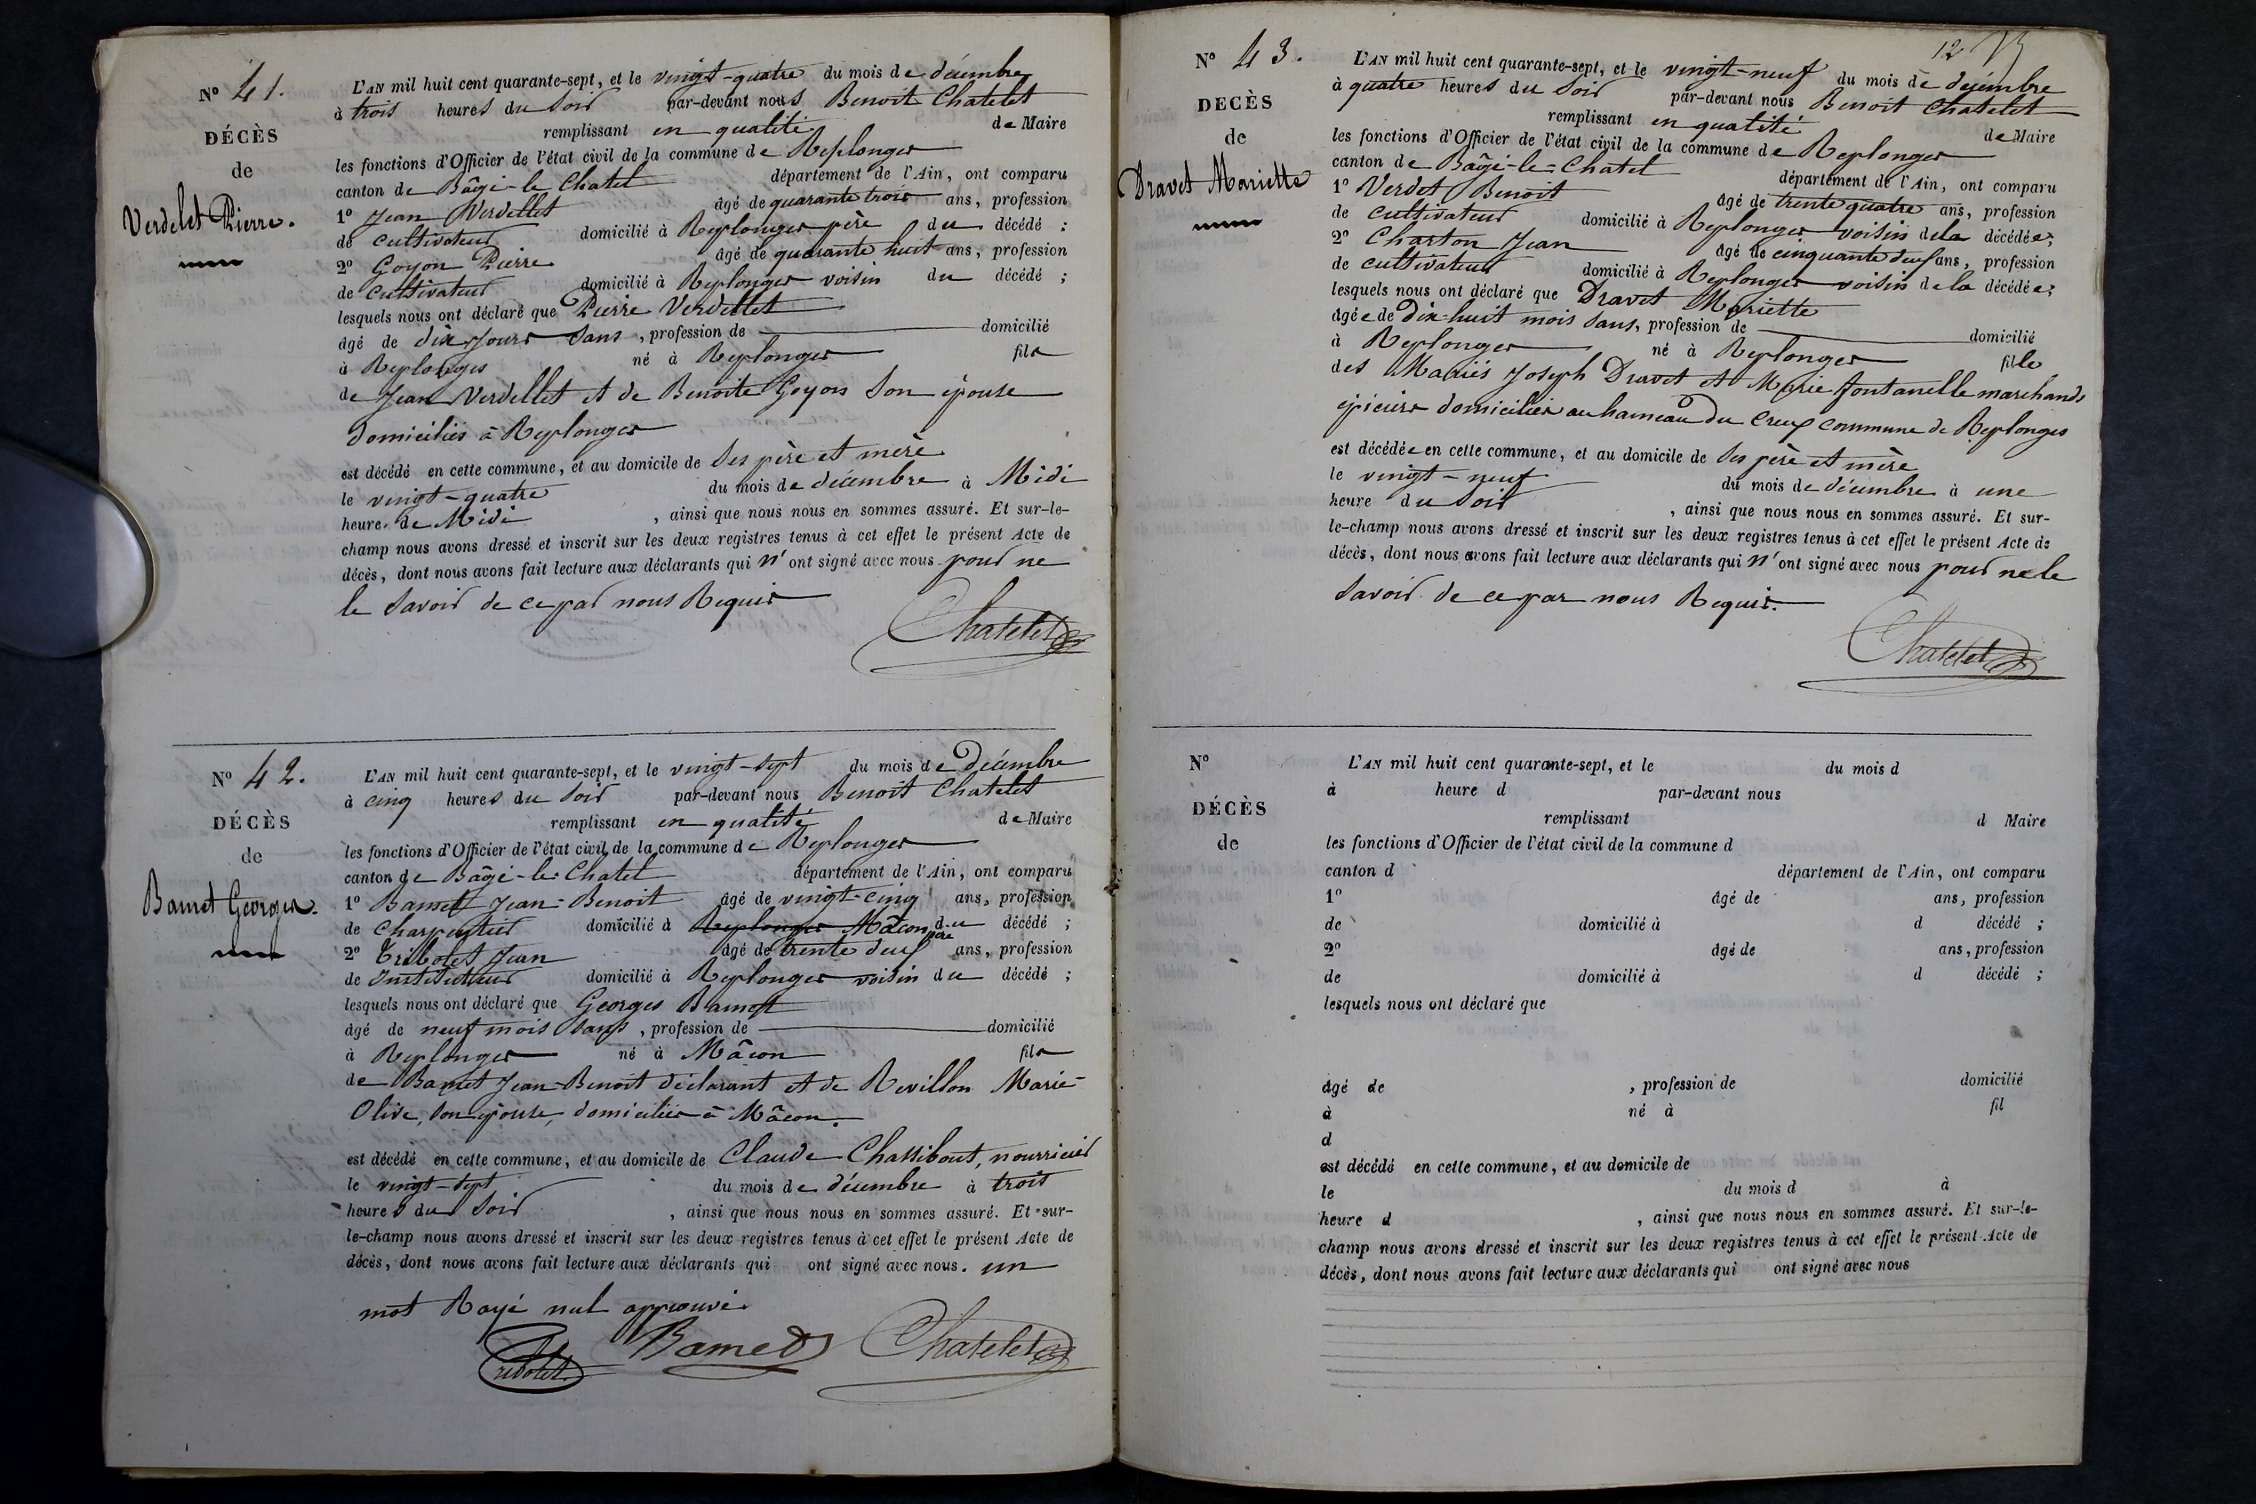 N° 41.
DÉCÈS
de
Verdelet Pierre.
L'AN mil huit cent quarante-sept, et le vingt-quatre du mois de décembre
à trois heures du soir par-devant nous Benoit Chatelet
remplissant en qualité de Maire
les fonctions d'Officier de l'état civil de la commune de Replonges
canton de Bâgé-le-Chatel département de l'Ain, ont comparu
1° Jean Verdellet âgé de quarante trois ans, profession
de cultivateur domicilié à Replonges père du décédé ;
2° Goyon Pierre âgé de quarante huit ans, profession
de cultivateur domicilié à Replonges voisin du décédé ;
lesquels nous ont déclaré que Pierre Verdellet
âgé de dix jours sans, profession de domicilié
à Replonges né à Replonges fils
de Jean Verdellet et de Benoite Goyon son épouse
domiciliés à Replonges
est décédé en cette commune, et au domicile de ses père et mère
le vingt-quatre du mois de décembre à Midi
heure de Midi, ainsi que nous nous en sommes assuré. Et sur-le-
champ nous avons dressé et inscrit sur les deux registres tenus à cet effet le présent Acte de
décès, dont nous avons fait lecture aux déclarants qui n'ont signé avec nous pour ne
le savoir de ce par nous Requis
Chatelet
N° 42.
DÉCÈS
de
Bamet Georges.
L'AN mil huit cent quarante-sept, et le vingt-sept du mois de décembre
à cinq heures du soir par-devant nous Benoit Chatelet
remplissant en qualité de Maire
les fonctions d'Officier de l'état civil de la commune de Replonges
canton de Bâgé-le-Chatel département de l'Ain, ont comparu
1° Bamet Jean-Benoit âgé de vingt-cinq ans, profession
de charpentier domicilié à Replonges Mâcon père du décédé ;
2° Tribolet Jean âgé de trente deux ans, profession
de Instituteur domicilié à Replonges voisin du décédé ;
lesquels nous ont déclaré que Georges Bamet
âgé de neuf mois sans, profession de domicilié
à Replonges né à Mâcon fils
de Bamet Jean-Benoit déclarant et de Revillon Marie-
Olive, son épouse, domiciliés à Mâcon.
est décédé en cette commune, et au domicile de Claude Chassibout, nourricier
le vingt-sept du mois de décembre à trois
heures du soir, ainsi que nous nous en sommes assuré. Et sur-
le-champ nous avons dressé et inscrit sur les deux registres tenus à cet effet le présent Acte de
décès, dont nous avons fait lecture aux déclarants qui ont signé avec nous. un
mot Rayé nul approuvé.
Tribolet Bamet Chatelet
12
N° 43.
DÉCÈS
de
Dravet Mariette
L'AN mil huit cent quarante-sept, et le vingt-neuf du mois de décembre
à quatre heures du soir par-devant nous Benoit Chatelet
remplissant en qualité de Maire
les fonctions d'Officier de l'état civil de la commune de Replonges
canton de Bâgé-le-Chatel département de l'Ain, ont comparu
1° Verdet Benoit âgé de trente quatre ans, profession
de cultivateur domicilié à Replonges voisin de la décédée ;
2° Charton Jean âgé de cinquante deux ans, profession
de cultivateur domicilié à Replonges voisin de la décédée ;
lesquels nous ont déclaré que Dravet Mariette
âgée de Dix-huit mois sans, profession de domicilié
à Replonges né à Replonges fille
des Mariés Joseph Dravet et Marie fontanelle marchands
épiciers domiciliés au hameau du Creux commune de Replonges
est décédée en cette commune, et au domicile de ses père et mère
le vingt-neuf du mois de décembre à une
heure du soir, ainsi que nous nous en sommes assuré. Et sur-
le-champ nous avons dressé et inscrit sur les deux registres tenus à cet effet le présent Acte de
décès, dont nous avons fait lecture aux déclarants qui n'ont signé avec nous pour ne le
savoir de ce par nous Requis.
Chatelet
N°
DÉCÈS
de
L'AN mil huit cent quarante-sept, et le du mois d
à heure d par-devant nous
remplissant d Maire
les fonctions d'Officier de l'état civil de la commune d
canton d département de l'Ain, ont comparu
1° âgé de ans, profession
de domicilié à d décédé ;
2° âgé de ans, profession
de domicilié à d décédé ;
lesquels nous ont déclaré que
âgé de , profession de domicilié
à né à fil
d
est décédé en cette commune, et au domicile de
le du mois d à
heure d , ainsi que nous nous en sommes assuré. Et sur-le-
champ nous avons dressé et inscrit sur les deux registres tenus à cet effet le présent Acte de
décès, dont nous avons fait lecture aux déclarants qui ont signé avec nous